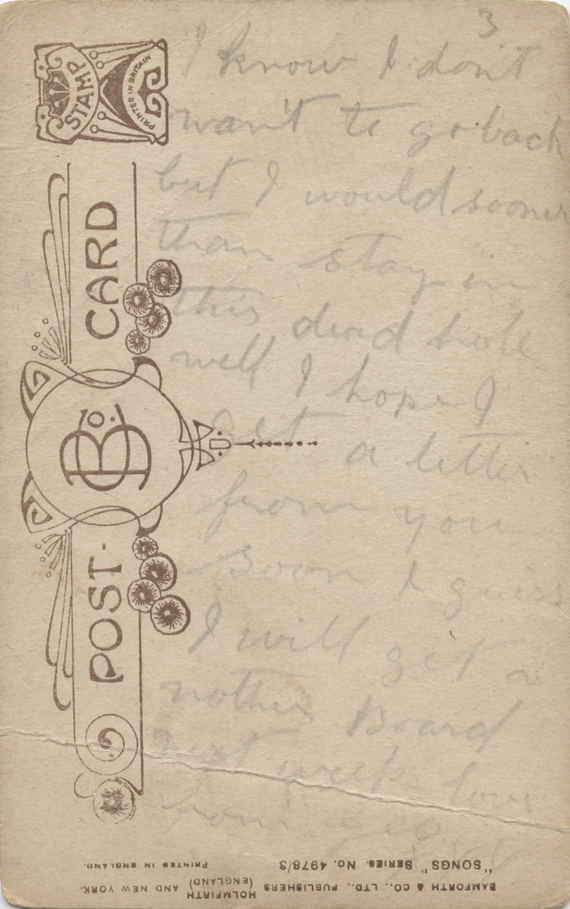 3
I know I don't
want to go back
but I would sooner
than stay in
this dead hole
well I hope I
get a letter
from you
soon I guess
I will get a
nother Board
next week love
from
STAMP
PRINTED IN BRITAIN
POST-CARD
B & Co.
BAMFORTH & CO., LTD., PUBLISHERS HOLMFIRTH (ENGLAND) AND NEW YORK.
"SONGS" SERIES. NO. 4978/3 PRINTED IN ENGLAND.